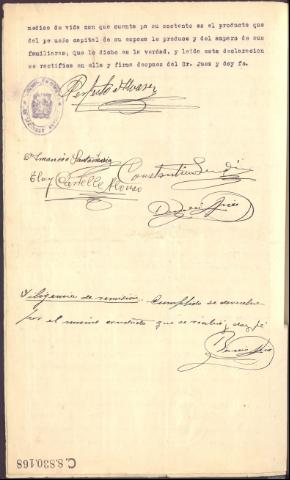 medios de vida con que cuenta para su sostento es el producto que
del pequeño capital de su esposa le produce y del ampero de sus
familiares; Que lo dicho es la verdad, y leida esta declaracion
se ratifica en ella y firma despues del Sr. Juez y doy fe.
Perfecto Alvarez
Amancio
Eloy Castelle Alonso
Constantino
Diligencia de remision. Cumplido se devuelve
por el mismo conducto que se recibio; doy fé
C.8.830.168